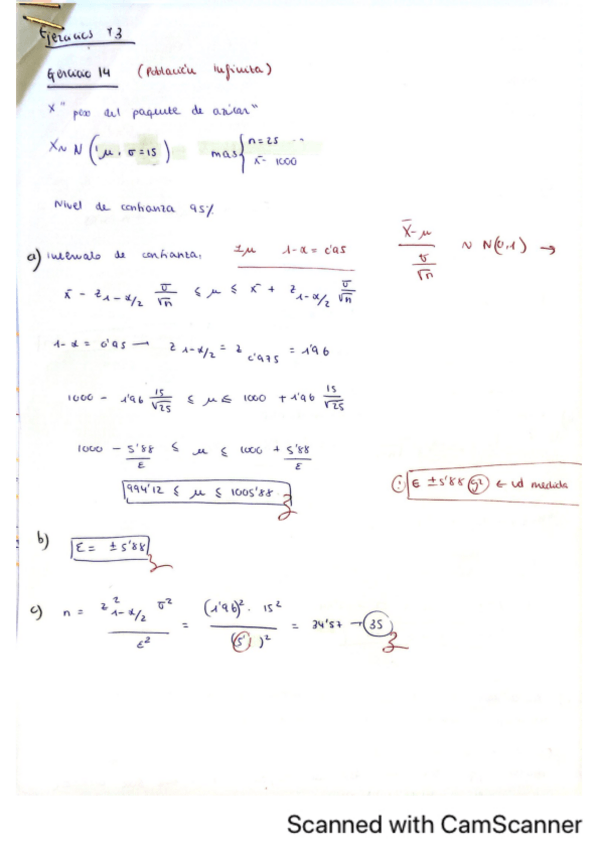 Ejercicios T3
Ejercicio 14 (Población infinita)
X "peso del paquete de azúcar"
X ~ N (μ, σ=15) mas { n=25
x̄ = 1000
Nivel de confianza 95%
a) Intervalo de confianza. Iμ 1-α = 0'95 (X̄-μ)/(σ/√n) ~ N(0,1) →
x̄ - z1-α/2 σ/√n ≤ μ ≤ x̄ + z1-α/2 σ/√n
1-α = 0'95 → z1-α/2 = z0'975 = 1'96
1000 - 1'96 15/√25 ≤ μ ≤ 1000 + 1'96 15/√25
1000 - 5'88 ≤ μ ≤ 1000 + 5'88
ε ε
994'12 ≤ μ ≤ 1005'88
¡! ε ± 5'88 ← ud medida
b) ε = ± 5'88
c) n = z²1-α/2 σ² / ε² = (1'96)² · 15² / (5)² = 34'57 → 35
Scanned with CamScanner